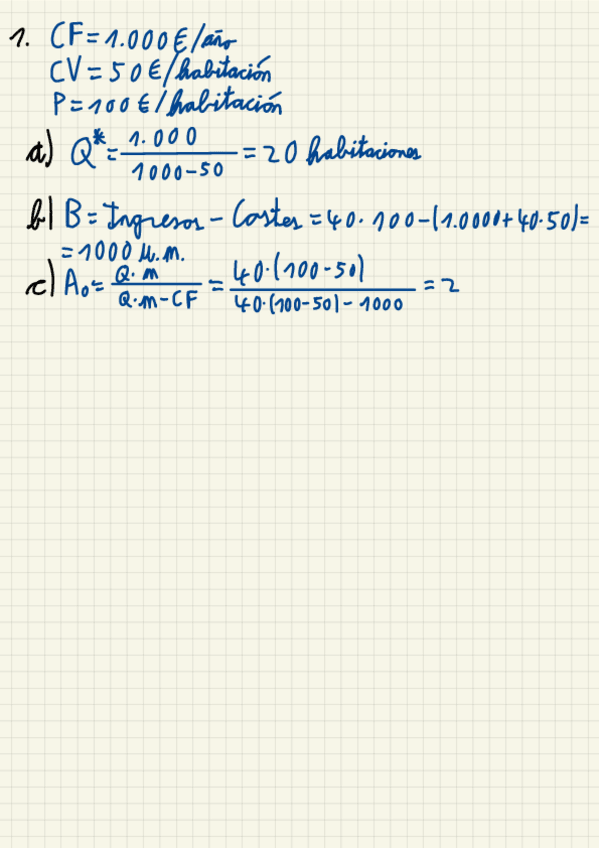 1. CF = 1.000 € / año
CV = 50 € / habitación
P = 100 € / habitación
a) Q* = 1.000 / 1000 - 50 = 20 habitaciones
b) B = Ingresos - Costes = 40 · 100 - (1.0000 + 40 · 50) =
= 1000 u.m.
c) A₀ = Q · m / Q · m - CF = 40 · (100 - 50) / 40 · (100 - 50) - 1000 = 2